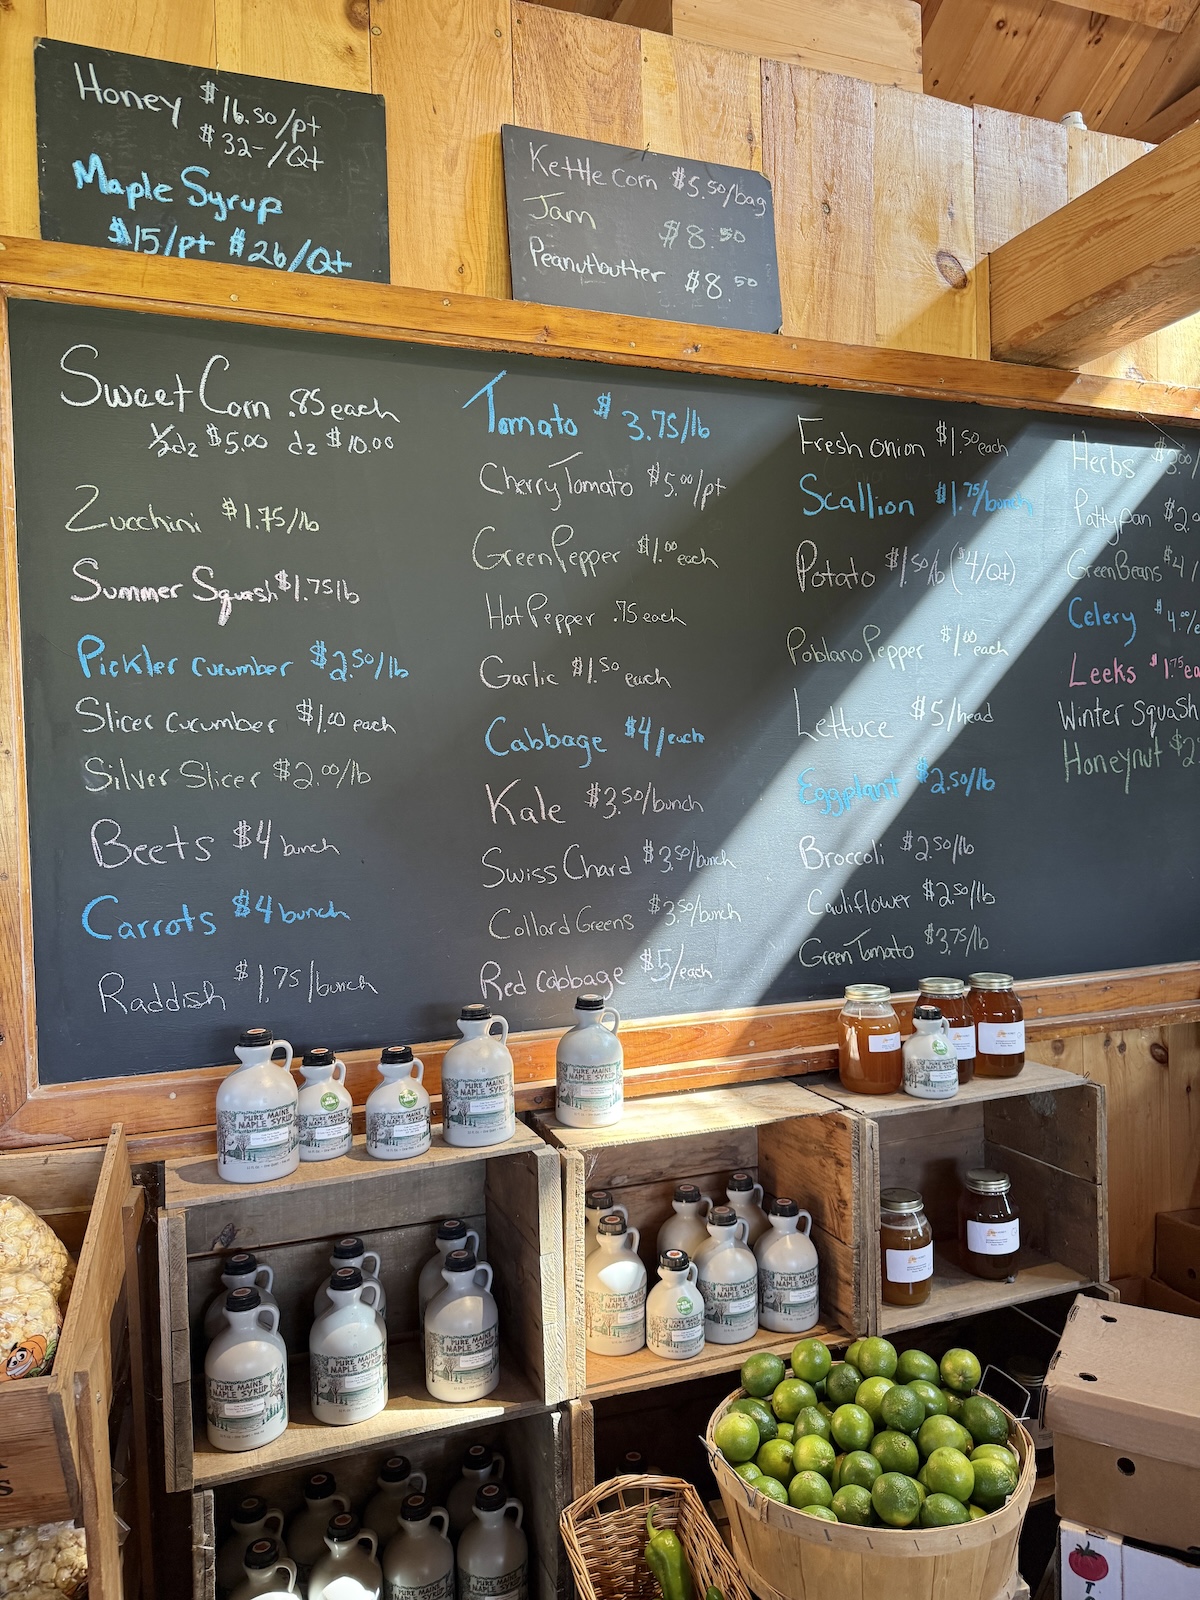 Honey $16.50/pt
$32-/Qt
Maple Syrup
$15/pt $26/Qt
Kettle corn $5.50/bag
Jam $8.50
Peanutbutter $8.50
Sweet Corn .85 each
1/2 dz $5.00 dz $10.00
Zucchini $1.75/lb
Summer Squash $1.75lb
Pickler cucumber $2.50/lb
Slicer cucumber $1.00 each
Silver Slicer $2.00/lb
Beets $4 bunch
Carrots $4 bunch
Raddish $1.75/bunch
Tomato $3.75/lb
Cherry Tomato $5.00/pt
Green Pepper $1.00 each
Hot Pepper .75 each
Garlic $1.50 each
Cabbage $4/each
Kale $3.50/bunch
Swiss Chard $3.50/bunch
Collard Greens $3.50/bunch
Red Cabbage $5/each
Fresh onion $1.50 each
Scallion $1.75/bunch
Potato $1.50/lb ($4/Qt)
Poblano Pepper $1.00 each
Lettuce $5/head
Eggplant $2.50/lb
Broccoli $2.50/lb
Cauliflower $2.50/lb
Green Tomato $3.75/lb
Herbs
Pattypan $2.
Green Beans $4/
Celery $4.00/e
Leeks $1.75 ea
Winter Squash
Honeynut $2.
PURE MAINE
MAPLE SYRUP
PURE MAINE
MAPLE SYRUP
PURE MAINE
MAPLE SYRUP
PURE MAINE
MAPLE SYRUP
PURE MAINE
MAPLE SYRUP
PURE MAINE
MAPLE SYRUP